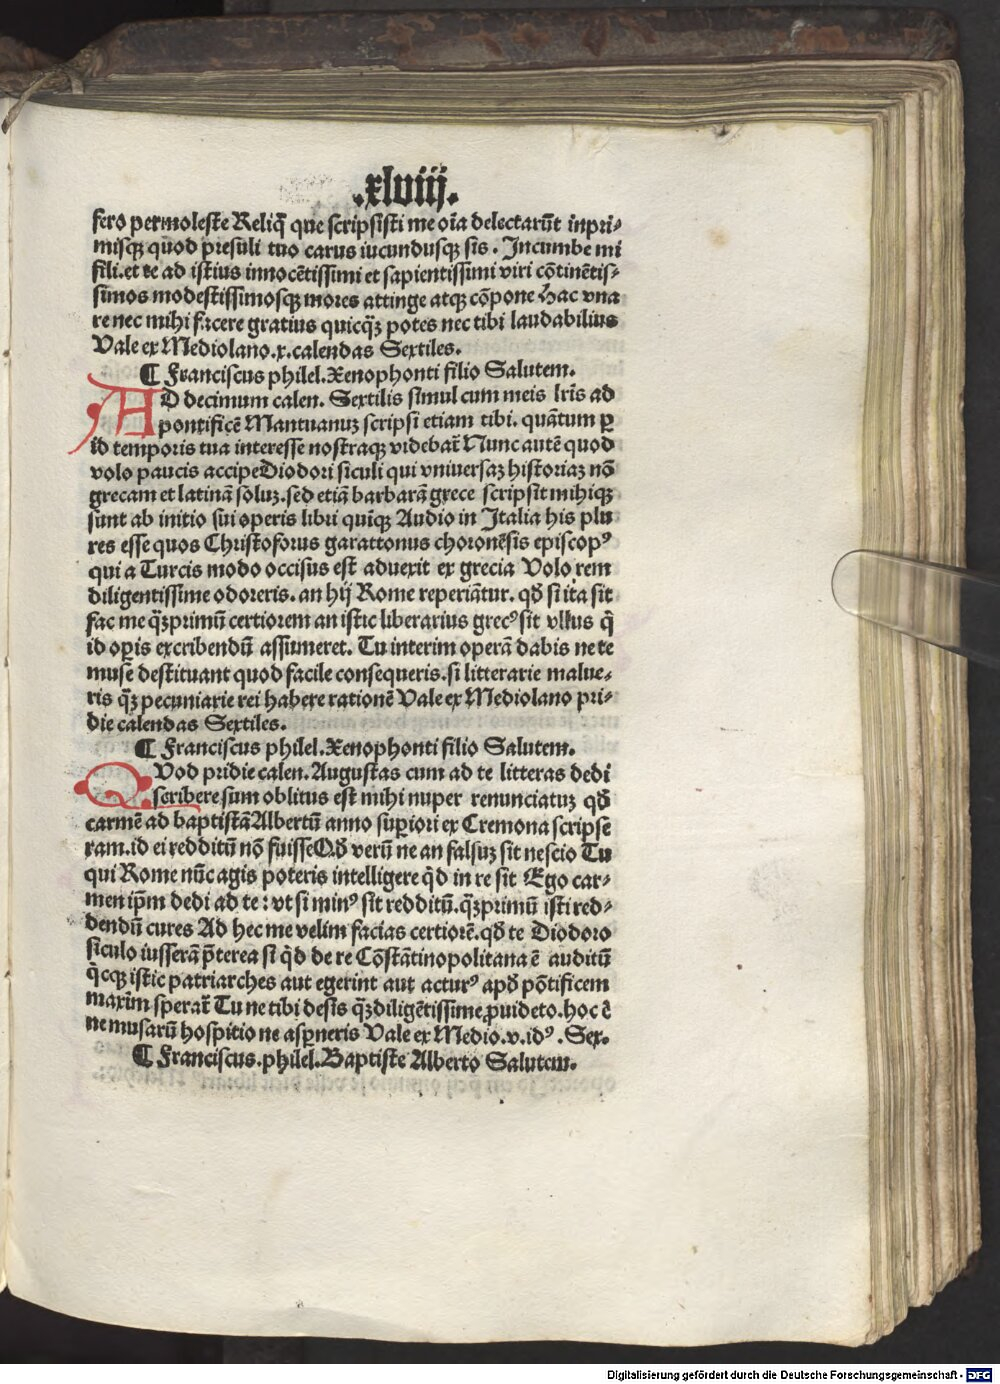 .xlviij.
fero permoleste Reliq̄ que scripsisti me oīa delectarūt inpri⸗
misqꝫ quod presuli tuo carus iucundusqꝫ sis. Incumbe mi
fili.et te ad istius innocētissimi et sapientissimi viri cōtinētis⸗
simos modestissimosqꝫ mores attinge atqꝫ cōpone Hac vna
re nec mihi facere gratius quicq̄ꝫ potes nec tibi laudabilius
Vale ex Mediolano.x.calendas Sextiles.
¶ Franciscus philel.Xenophonti filio Salutem.
AD decimum calen. Sextilis simul cum meis lr̄is ad
pontificē Mantuanuꝫ scripsi etiam tibi. quātum ꝑ
id temporis tua interesse nostraqꝫ videbat̄ Nunc autē quod
volo paucis accipe Diodori siculi qui vniuersaꝫ historiaꝫ nō
grecam et latinā soluꝫ.sed etiā barbarā grece scripsit mihiqꝫ
sunt ab initio sui operis libri quīqꝫ Audio in Italia his plu
res esse quos Christoforus garattonus choronēsis episcopꝰ
qui a Turcis modo occisus est aduexit ex grecia Volo rem
diligentissime odoreris. an hij Rome reperiātur. qd̄ si ita sit
fac me q̄ꝫprimū certiorem an istic liberarius grecꝰ sit vllus q̄
id oꝑis excribendū assumeret. Tu interim operā dabis ne te
muse destituant quod facile consequeris.si litterarie malue⸗
ris q̄ꝫ pecuniarie rei habere rationē Vale ex Mediolano pri⸗
die calendas Sextiles.
¶ Franciscus philel.Xenophonti filio Salutem.
QVod pridie calen.Augustas cum ad te litteras dedi
scribere sum oblitus est mihi nuper renunciatuꝫ qd̄
carmē ad baptistā Albertū anno suꝑiori ex Cremona scripse
ram.id ei redditū nō fuisse Qd̄ verū ne an falsuꝫ sit nescio Tu
qui Rome nūc agis poteris intelligere q̇d in re sit Ego car⸗
men ip̄m dedi ad te: vt si minꝰ sit redditū.q̄ꝫprimū isti red⸗
dendū cures Ad hec me velim facias certiorē.qd̄ te Diodoro
siculo iusserā p̄terea si q̇d de re Cōstātinopolitana ē auditū
q̇cqꝫ istic patriarches aut egerint aut acturꝰ apd̄ pōtificem
maxīm sperat̄ Tu ne tibi desis q̄ꝫdiligētissime ꝓuideto.hoc ē
ne musarū hospitio ne asꝑneris Vale ex Medio.v.idꝰ. Sex.
¶ Franciscus.philel.Baptiste Alberto Salutem.
Digitalisierung gefördert durch die Deutsche Forschungsgemeinschaft - DFG